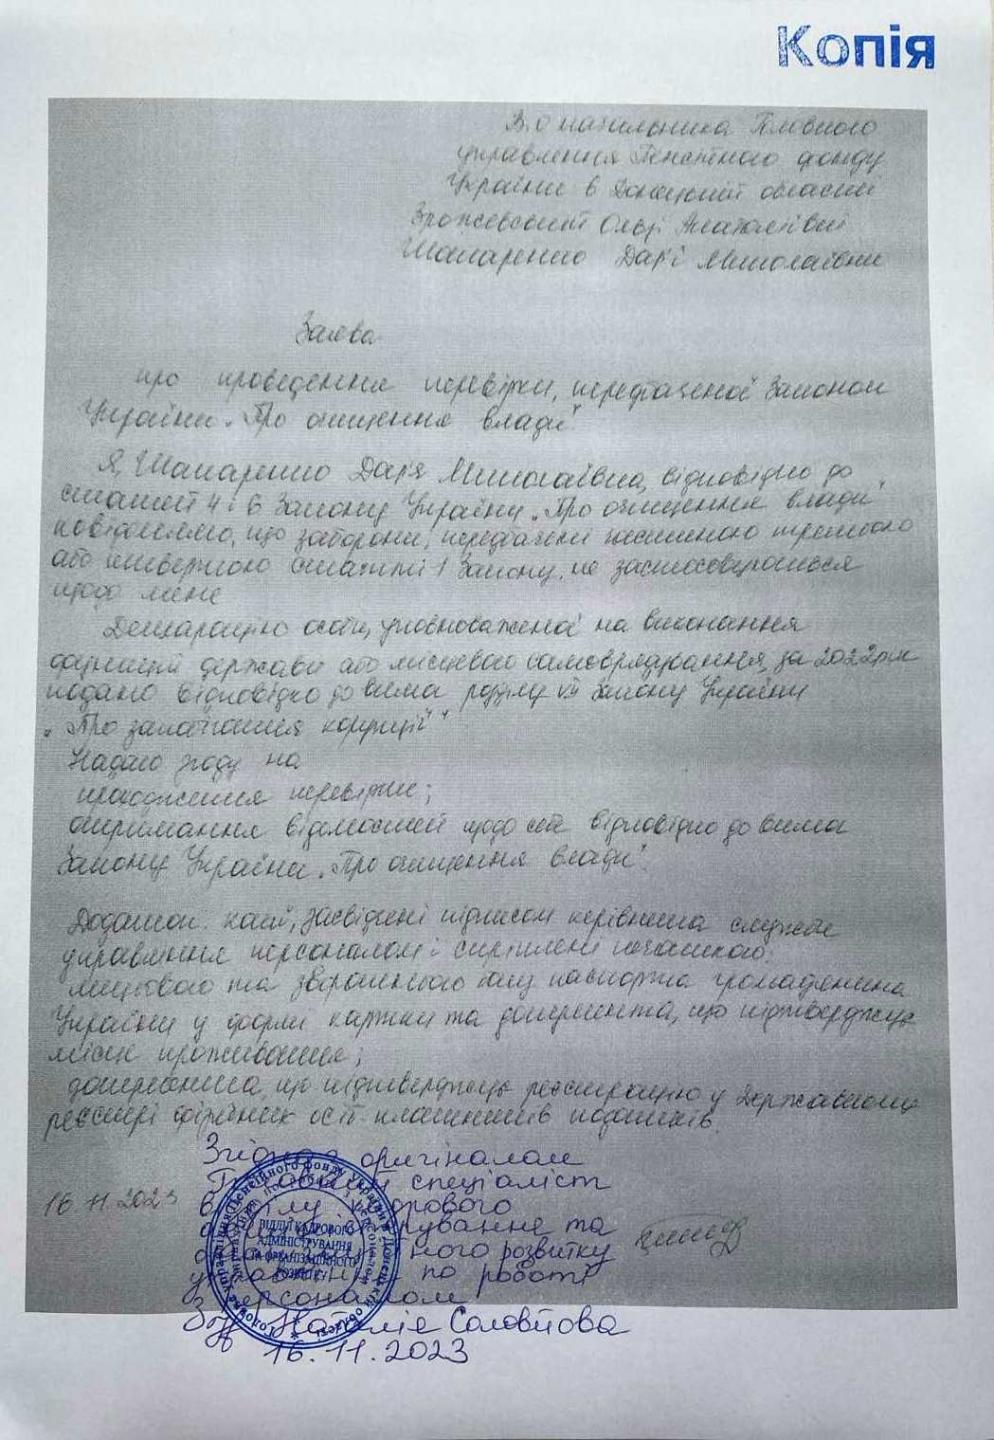 Копія
В.о начальника Головного
управління Пенсійного фонду
України в Донецькій області
Зрожевській Ользі Анатоліївні
Шапаренко Дар'ї Миколаївни
Заява
про проведення перевірки, передбаченої Законом
України „Про очищення влади"
Я, Шапаренко Дар'я Миколаївна, відповідно до
статей 4 і 6 Закону України „Про очищення влади"
повідомляю, що заборони, передбачені частиною третьою
або четвертою статті 1 Закону, не застосовуються
щодо мене
Декларацію особи, уповноваженої на виконання
функцій держави або місцевого самоврядування, за 2022 рік
подано відповідно до вимог розділу VII Закону України
„Про запобігання корупції"
Надаю згоду на
проходження перевірки;
оприлюднення відомостей щодо себе відповідно до вимог
Закону України „Про очищення влади".
Додатки: копії, засвідчені підписом керівника служби
управління персоналом і скріплені печаткою:
лицьового та зворотнього боку паспорта громадянина
України у формі картки та документа, що підтверджує
місце проживання;
документа, що підтверджує реєстрацію у Державному
реєстрі фізичних осіб-платників податків.
16.11.2023
Згідно з оригіналом
Головний спеціаліст
відділу кадрового
адміністрування та
організаційного розвитку
управління по роботі
з персоналом
Наталія Соловйова
16.11.2023
Головне управління Пенсійного фонду України в Донецькій області
Управління по роботі з персоналом
ВІДДІЛ КАДРОВОГО
АДМІНІСТРУВАННЯ
ТА ОРГАНІЗАЦІЙНОГО
РОЗВИТКУ